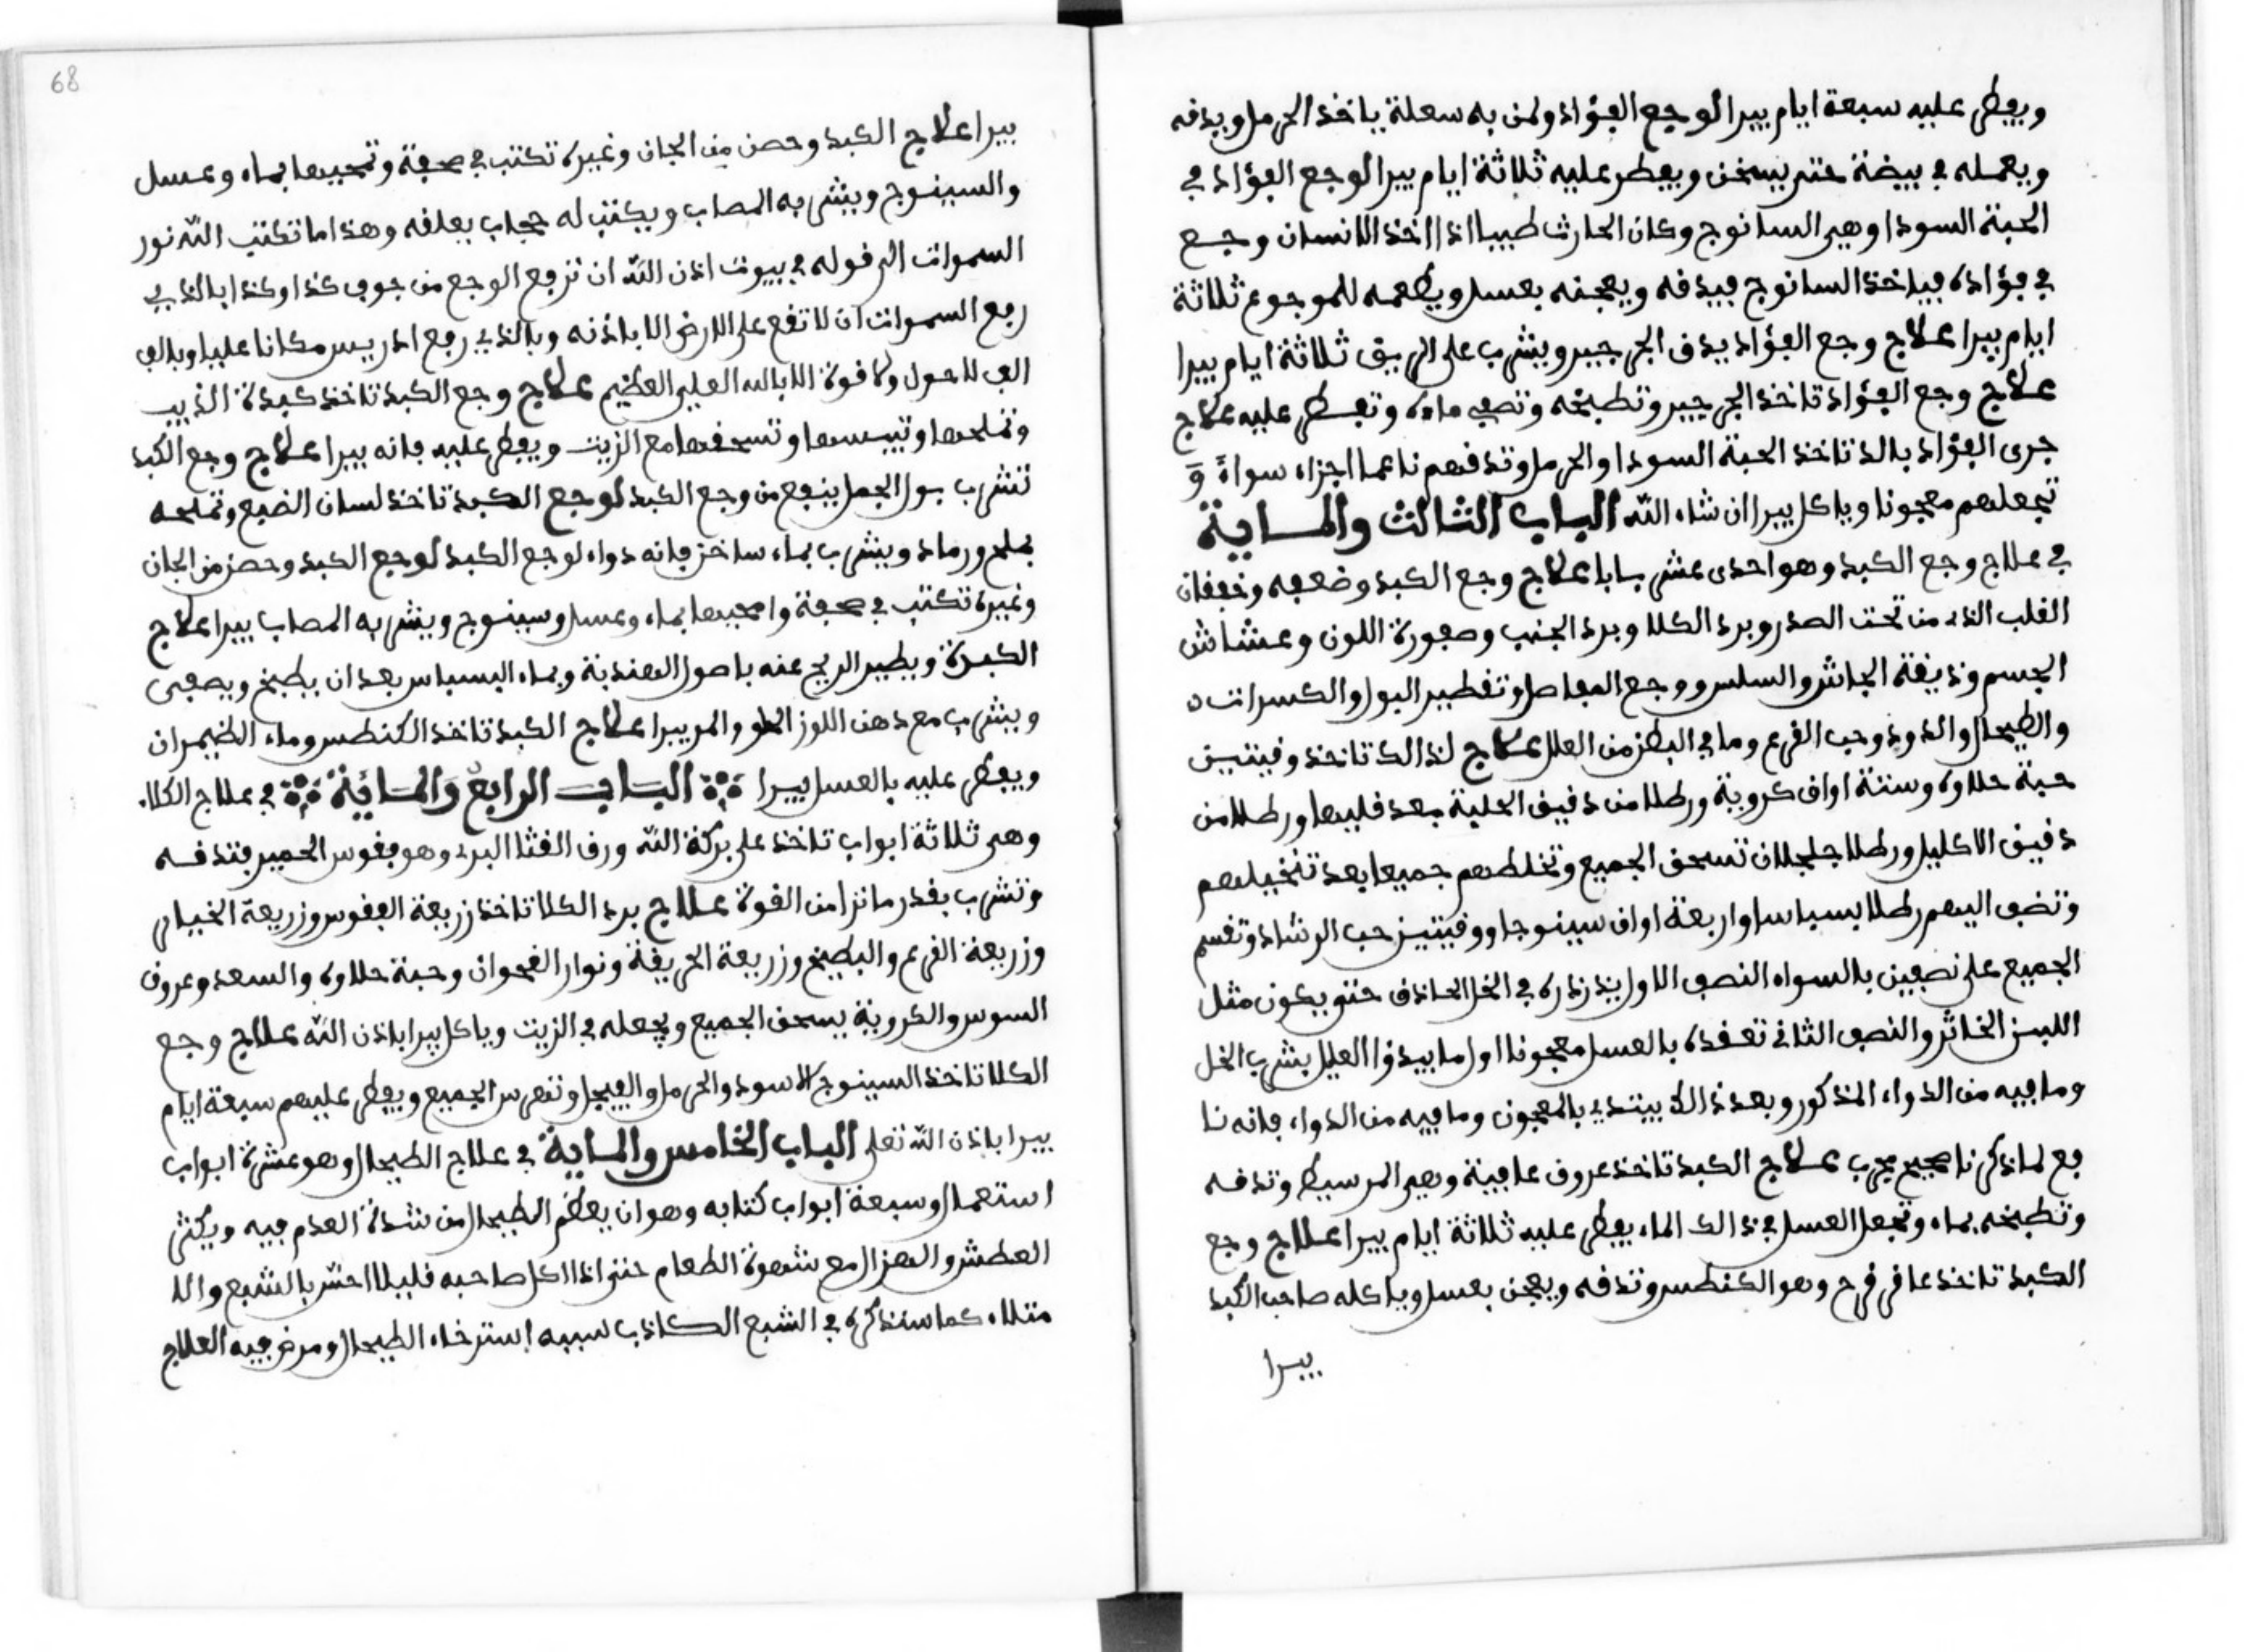 ويفطر عليه سبعة ايام يبرا لوجع الفؤاد ولمن به سعلة ياخذ الحرمل ويدفه
ويعمله في بيضة حتى يسخن ويفطر عليه ثلاثة ايام يبرا لوجع الفؤاد في
الحبة السودا وهي السانوج وكان الحارث طبيبا اذا اخذ الانسان وجع
في فؤاده فياخذ السانوج فيدفه ويعجنه بعسل ويطعمه للموجوع ثلاثة
ايام يبرا علاج وجع الفؤاد يدف الجرجير ويشرب على الريق ثلاثة ايام يبرا
علاج وجع الفؤاد تاخذ الجرجير وتطبخه وتصفي ماءه وتفطر عليه علاج
جرى الفؤاد بالد تاخذ الحبة السودا والحرمل وتدفهم ناعما اجزاء سواءً وَ
تجعلهم معجونا وياكل يبرا ان شاء الله الباب الثالث والماية
في علاج وجع الكبد وهو احدى عشر بابا علاج وجع الكبد وضعفه وخفقان
القلب الذي من تحت الصدر وبرد الكلا وبرد الجنب وصفورة اللون وعشاش
الجسم وذيقة الجاش والسلس ووجع المفاصل وتقطير البول والكسرات
والطيحال والدود وحب القرع وما في البطن من العلل علاج لذالك تاخذ وقيتين
حبة حلاوه وستة اواق كروية ورطلا من دقيق الحلبة بعد قليها ورطلا من
دقيق الاكليل ورطلا جلجلان تسحق الجميع وتخلطهم جميعا بعد تنخيلهم
وتضف اليهم رطلا بسباسا واربعة اواق سينوجا ووقيتين حب الرشاد وتقسم
الجميع على نصفين بالسواء النصف الاول يذرذره في الخل الحاذق حتى يكون مثل
اللبن الخاثر والنصف الثاني تعقده بالعسل معجونا اول ما يبدؤا العليل بشرب الخل
وما فيه من الدواء المذكور وبعد ذالك يبتدي بالمعجون وما فيه من الدواء فانه نا
فع لما ذكرنا صحيح مجرب علاج الكبد تاخذ عروق عافية وهي المرسيط وتدفه
وتطبخه بماء وتجعل العسل في ذالك الماء يفطر عليه ثلاثة ايام يبرا علاج وجع
الكبد تاخذ عاقرقرح وهو الكنطس وتدفه ويعجن بعسل وياكله صاحب الكبد
يبرا
68
يبرا علاج الكبد وحصن من الجان وغيره تكتب في صحفة وتمحيها بماء وعسل
والسينوج ويشربه المصاب ويكتب له حجاب يعلقه وهذا ما تكتب الله نور
السموات الى قوله في بيوت اذن الله ان ترفع الوجع من جوف كذا وكذا بالذي
رفع السموات ان لا تقع على الارض الا باذنه وبالذي رفع ادريس مكانا عليا وبالف
الف لا حول ولا قوة الا بالله العلي العظيم علاج وجع الكبد تاخذ كبدة الذيب
وتملحها وتيبسها وتسحقها مع الزيت ويفطر عليه فانه يبرا علاج وجع الكبد
تشرب بول الجمل ينفع من وجع الكبد لوجع الكبد تاخذ لسان الضبع وتملحه
بملح ورماد ويشرب بماء ساخن فانه دواء لوجع الكبد لوجع الكبد وحصن من الجان
وغيره تكتب في صحفة وامحيها بماء وعسل وسينوج ويشربه المصاب يبرا علاج
الكبدة ويطير الريح عنه باصول الهندبة وبماء البسباس بعد ان يطبخ ويصفى
ويشرب مع دهن اللوز الحلو والمر يبرا علاج الكبد تاخذ الكنطس وماء الضيمران
ويفطر عليه بالعسل يبرا الباب الرابع والمائة في علاج الكلا
وهي ثلاثة ابواب تاخذ على بركة الله ورق القثا البري وهو فقوس الحمير فتدفه
وتشرب بقدر ما ترا من القوة علاج برد الكلا تاخذ زريعة الفقوس وزريعة الخيار
وزريعة القرع والبطيخ وزريعة الحريقة ونوار القحوان وحبة حلاوه والسعد وعروق
السوس والكروية يسحق الجميع ويجعله في الزيت وياكل يبرا باذن الله علاج وجع
الكلا تاخذ السينوج الاسود والحرمل والفيجل وتهرس الجميع ويفطر عليهم سبعة ايام
يبرا باذن الله تعلى الباب الخامس والماية في علاج الطيحال وهو عشرة ابواب
استعمال وسبعة ابواب كتابه وهو ان يعظم الطيحال من شدة العدم فيه ويكثر
العطش والهزال مع شهوة الطعام حتى اذا اكل صاحبه قليلا احس بالشبع والا
متلاء كما سنذكره في الشبع الكاذب لسببه استرخاء الطيحال ومرض فيه العلاج